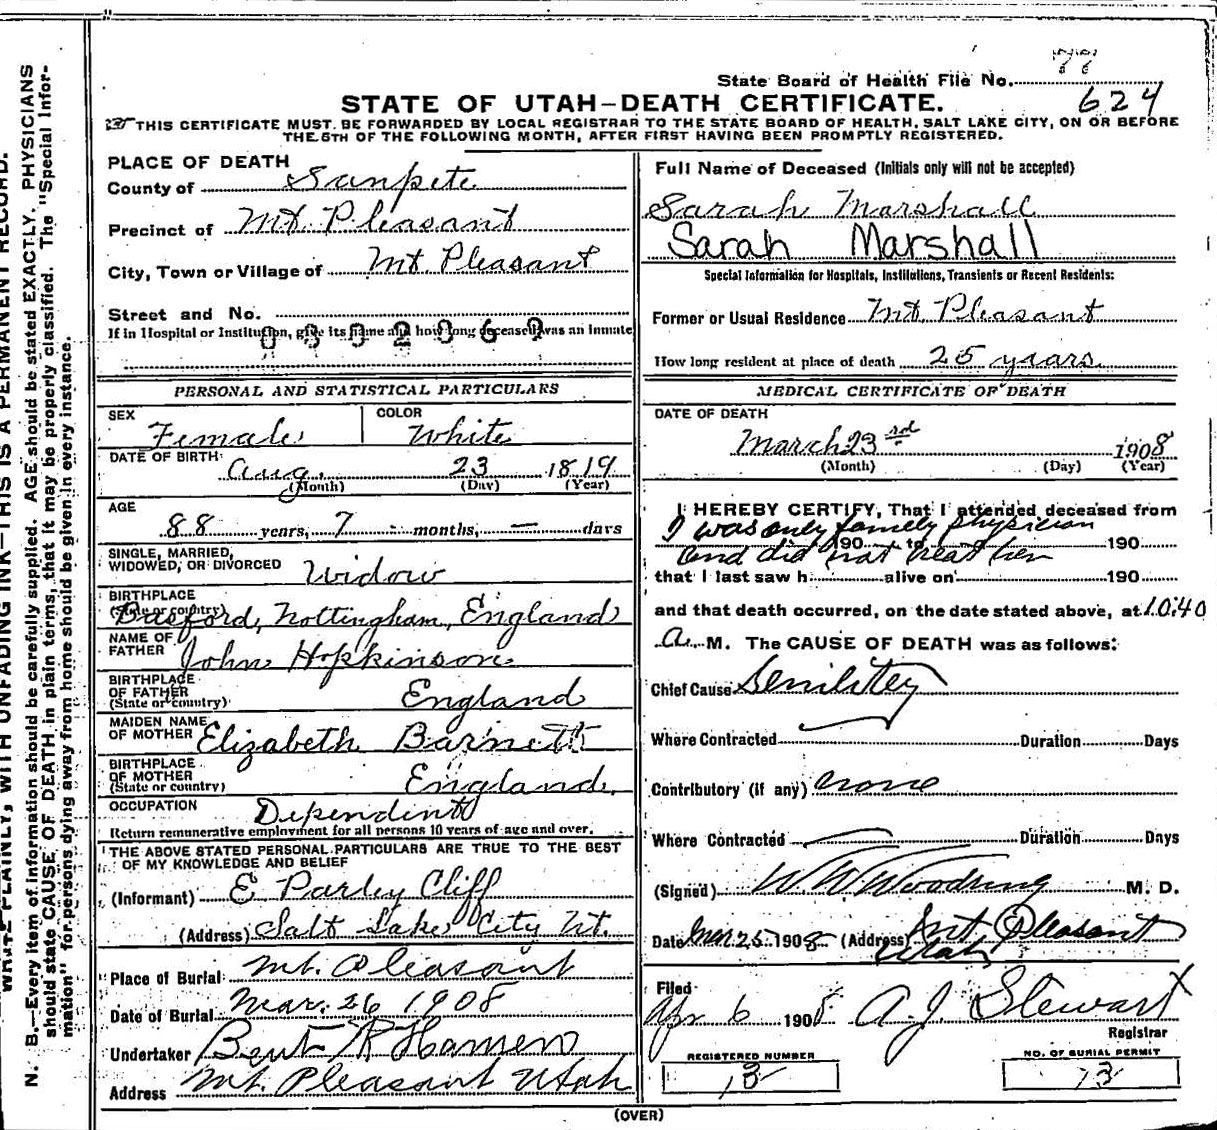 State Board of Health File No. 77
624
STATE OF UTAH—DEATH CERTIFICATE.
THIS CERTIFICATE MUST BE FORWARDED BY LOCAL REGISTRAR TO THE STATE BOARD OF HEALTH, SALT LAKE CITY, ON OR BEFORE
THE 5TH OF THE FOLLOWING MONTH, AFTER FIRST HAVING BEEN PROMPTLY REGISTERED.
PLACE OF DEATH
County of Sanpete
Precinct of Mt. Pleasant
City, Town or Village of Mt. Pleasant
Street and No.
If in Hospital or Institution, give its name and how long deceased was an inmate
PERSONAL AND STATISTICAL PARTICULARS
SEX
Female
COLOR
White
DATE OF BIRTH
Aug. 23 1819
(Month) (Day) (Year)
AGE
88 years, 7 months, — days
SINGLE, MARRIED,
WIDOWED, OR DIVORCED Widow
BIRTHPLACE
(State or country)
Basford, Nottingham, England
NAME OF
FATHER John Hopkinson
BIRTHPLACE
OF FATHER
(State or country) England
MAIDEN NAME
OF MOTHER Elizabeth Barnett
BIRTHPLACE
OF MOTHER
(State or country) England
OCCUPATION Dependent
Return remunerative employment for all persons 10 years of age and over.
THE ABOVE STATED PERSONAL PARTICULARS ARE TRUE TO THE BEST
OF MY KNOWLEDGE AND BELIEF
(Informant) E Parley Cliff
(Address) Salt Lake City Ut.
Place of Burial Mt. Pleasant
Date of Burial Mar. 26 1908
Undertaker Bent R Hansen
Address Mt. Pleasant Utah
Full Name of Deceased (Initials only will not be accepted)
Sarah Marshall
Sarah Marshall
Special Information for Hospitals, Institutions, Transients or Recent Residents:
Former or Usual Residence Mt. Pleasant
How long resident at place of death 25 years
MEDICAL CERTIFICATE OF DEATH
DATE OF DEATH
March 23rd 1908
(Month) (Day) (Year)
I HEREBY CERTIFY, That I attended deceased from
I was only family physician
190 to 190
and did not treat her
that I last saw h alive on 190
and that death occurred, on the date stated above, at 10:40
a. M. The CAUSE OF DEATH was as follows:
Chief Cause Senility
Where Contracted Duration Days
Contributory (if any) none
Where Contracted Duration Days
(Signed) W W Woodring M. D.
Date Mar 25 1908 (Address) Mt Pleasant
Utah
Filed
Apr 6 1908 A. J. Stewart
Registrar
REGISTERED NUMBER
13
NO. OF BURIAL PERMIT
13
(OVER)
WRITE PLAINLY, WITH UNFADING INK—THIS IS A PERMANENT RECORD.
N. B.—Every item of information should be carefully supplied. AGE should be stated EXACTLY. PHYSICIANS
should state CAUSE OF DEATH in plain terms, that it may be properly classified. The "Special Infor-
mation" for persons dying away from home should be given in every instance.